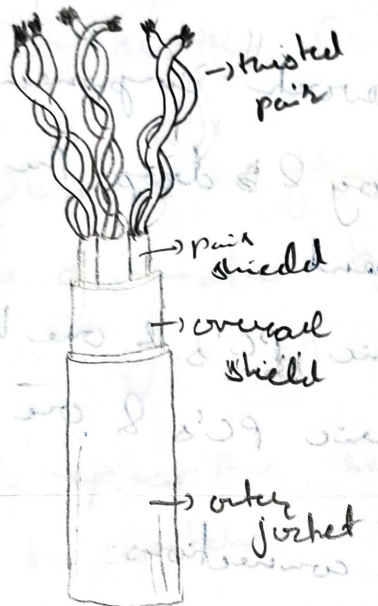 → twisted
pair
→ pair
shield
→ overall
shield
→ outer
jacket